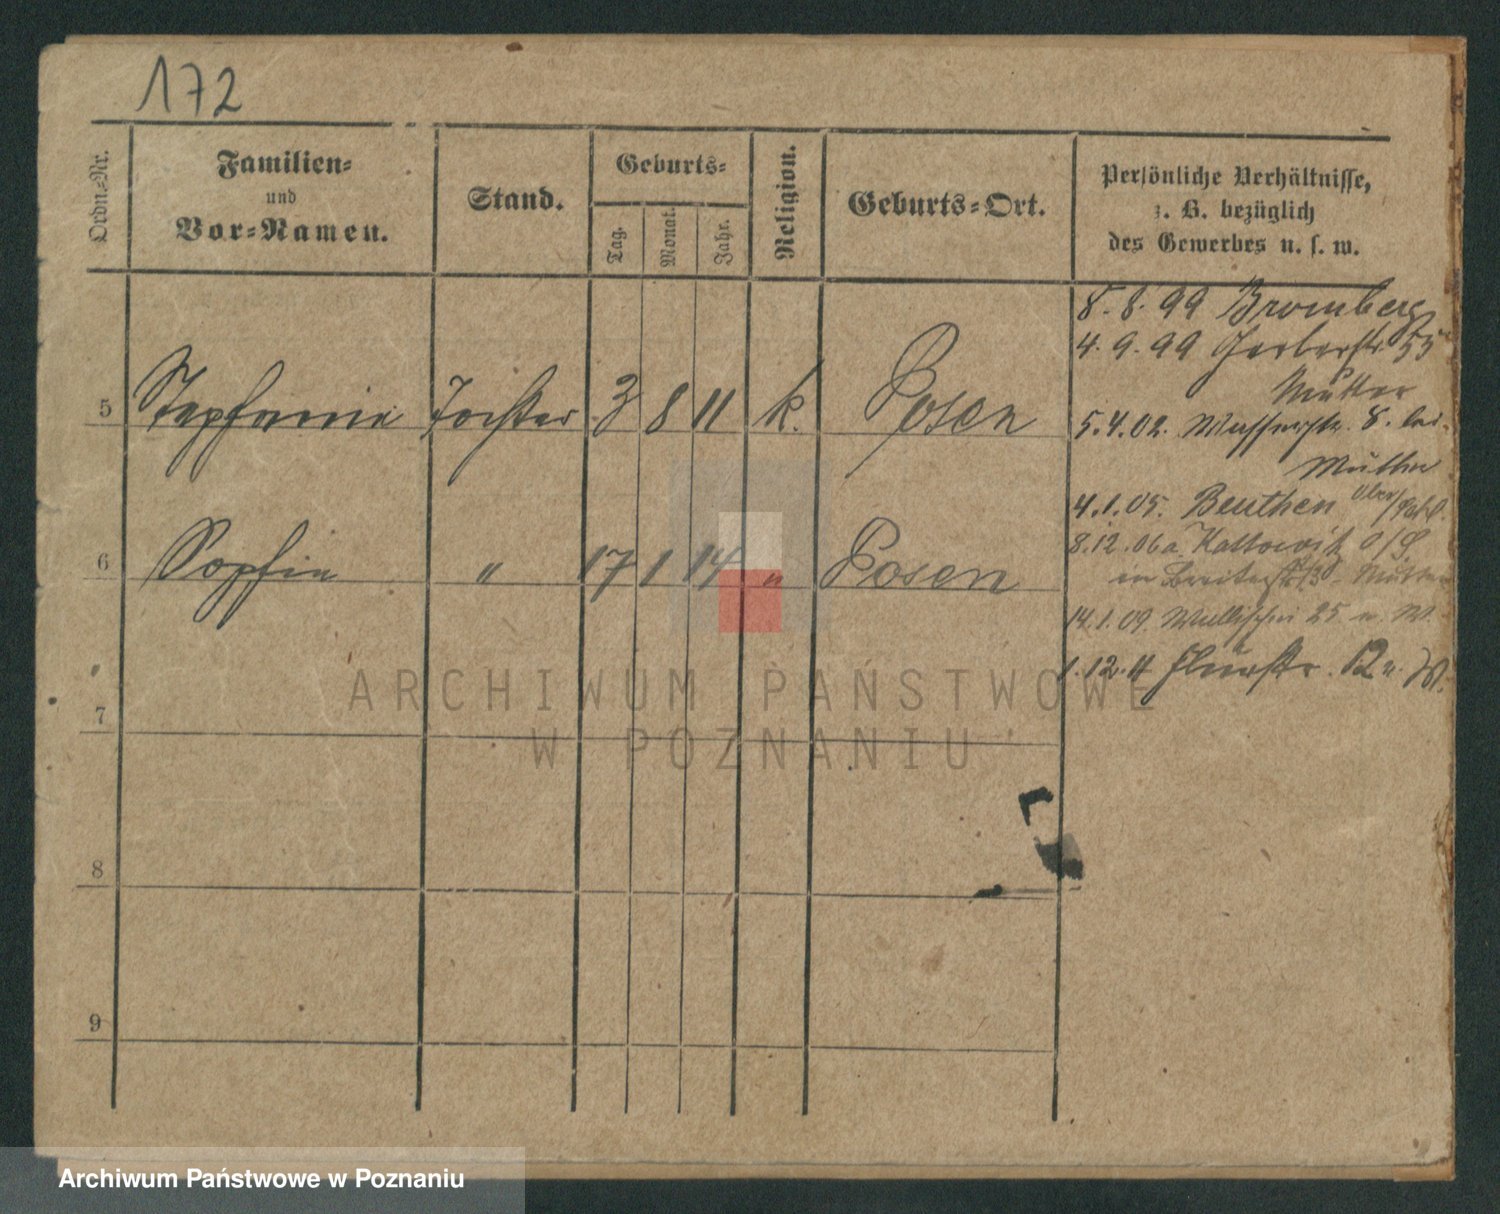 172
Ordn.-Nr.
Familien-
und
Vor-Namen.
Stand.
Geburts-
Tag.
Monat.
Jahr.
Religion.
Geburts-Ort.
Persönliche Verhältnisse,
z. B. bezüglich
des Gewerbes u. s. w.
8. 8. 99 Bromberg
4. 9. 99 Gerberstr. 53
Mutter
5 Stephanie Tochter 3 8 11 k. Posen
5. 4. 02. Wasserstr. 8. bei
Mutter
4. 1. 05. Beuthen Ober/
8. 12. 06 a Kattowitz O/S.
6 Sophie " 17 1 14 " Posen
in Breitestr. Mutter
14. 1. 09. Wallischei 25. u. W.
1. 12. 11 Flurstr. 12 u. W.
7
8
9
ARCHIWUM PAŃSTWOWE
W POZNANIU
Archiwum Państwowe w Poznaniu